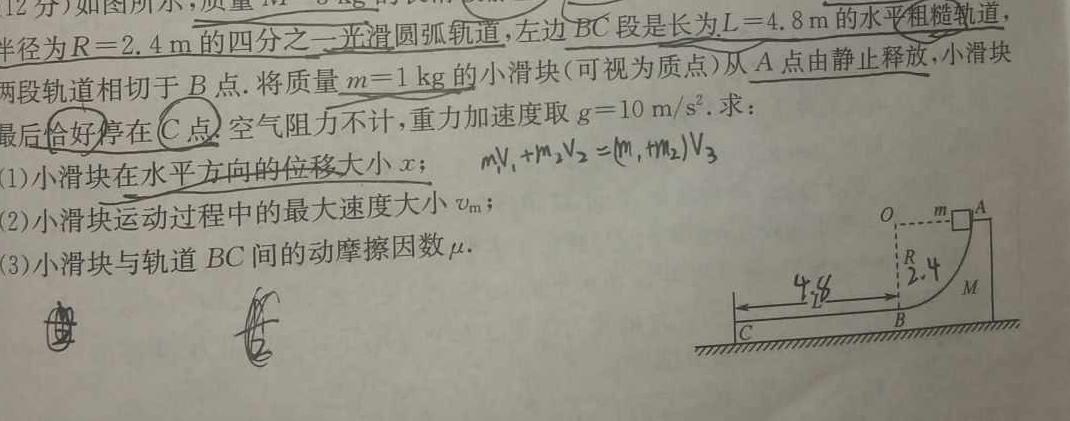 12分)如图所示,质量M
半径为R=2.4 m的四分之一光滑圆弧轨道,左边BC段是长为L=4.8 m的水平粗糙轨道,
两段轨道相切于B点.将质量m=1 kg的小滑块(可视为质点)从A点由静止释放,小滑块
最后恰好停在C点.空气阻力不计,重力加速度取g=10 m/s².求:
(1)小滑块在水平方向的位移大小x;
m₁V₁+m₂V₂=(m₁+m₂)V₃
(2)小滑块运动过程中的最大速度大小vₘ;
(3)小滑块与轨道BC间的动摩擦因数μ.
O m A
R
2.4
4.8
L
M
C B